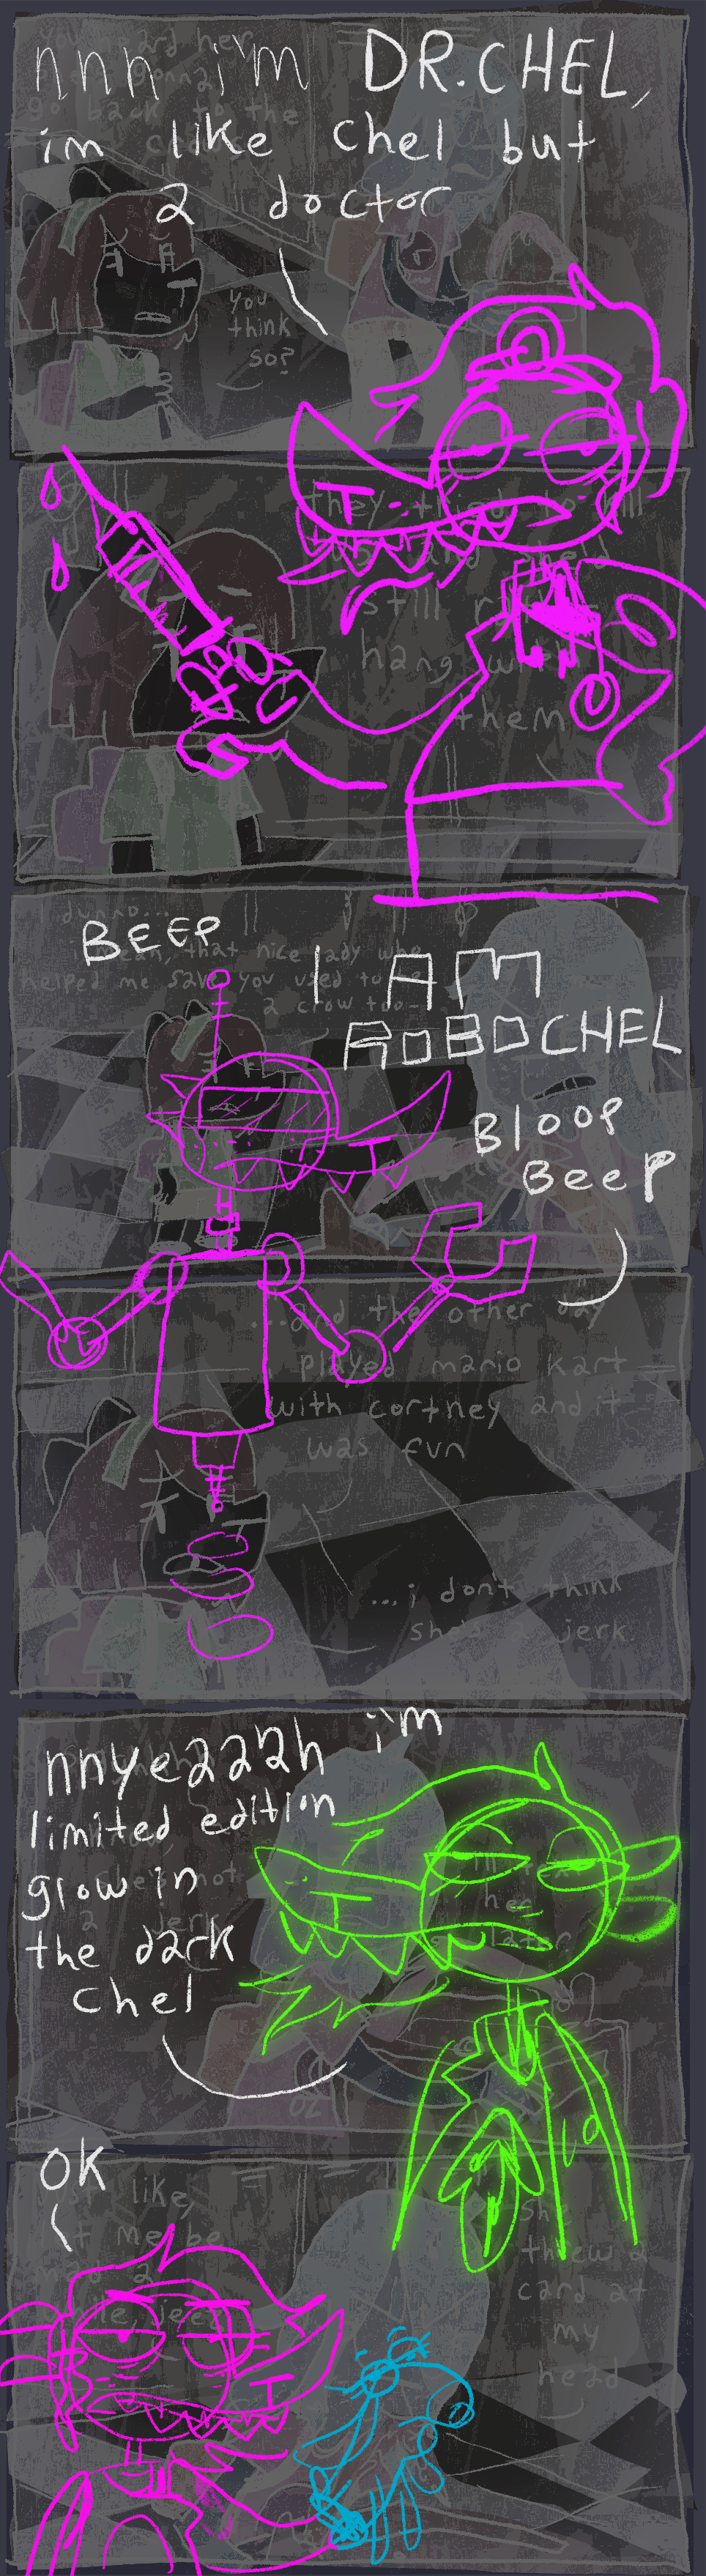 nnn i'm DR. CHEL,
im like chel but
2 doctor
you
think
so?
they tried to kill
still
hang with
them
BEEP
I AM
ROBOCHEL
Bloop
Beep
I dunno...
mean, that nice lady who
helped me save you used to be
a crow too
...and the other day
i played mario kart
with cortney and it
was fun
...i don't think
she's a jerk
nnyeaaah i'm
limited edition
glow in
the dark
chel
she's not
a jerk
her
later
OK
like,
me be
she
threw a
card at
my
head